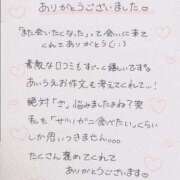 ありがとうございました♡
「また会いたくなった」って会いに来て
くれてありがとう(;;)
素敵な口コミもすごく嬉しいですな
あいうえお作文も考えてくれて...!
絶対「さ」悩みましたよね？笑
私も「サバ！が一に食べたい」くらい
しか思いつきません。。。
たくさん褒めてくれて
ありがとうございます♡